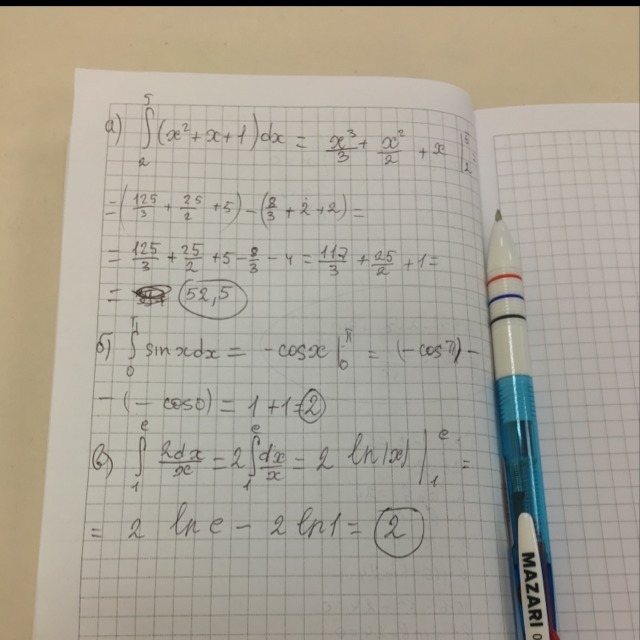 а) ∫₂⁵ (x²+x+1)dx = x³/3 + x²/2 + x |₂⁵
=(125/3 + 25/2 +5) - (8/3 +2+2)=
= 125/3 + 25/2 +5 - 8/3 - 4 = 117/3 + 25/2 +1=
= 52,5
б) ∫₀^π sinxdx = -cosx |₀^π = (-cosπ) -
- (- cos0) = 1+1=2
в) ∫₁ᵉ 2dx/x = 2∫₁ᵉ dx/x = 2 ln|x| |₁ᵉ =
= 2 ln e - 2 ln1 = 2
MAZARI